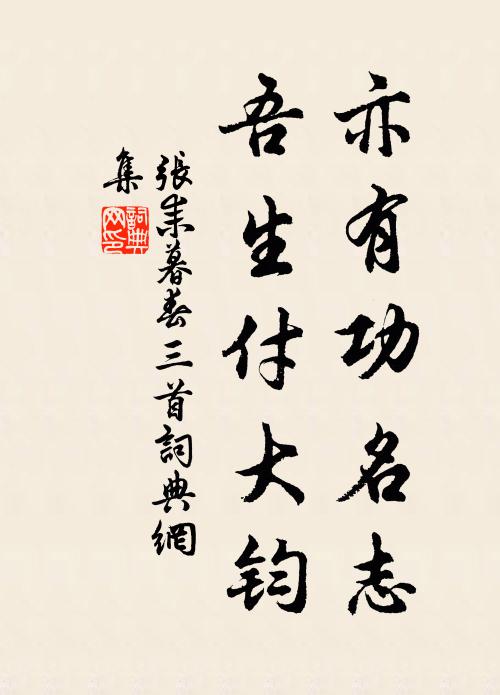 亦有功名志
吾生付大钧
張耒暮春三首詞典網
集
詞典网印